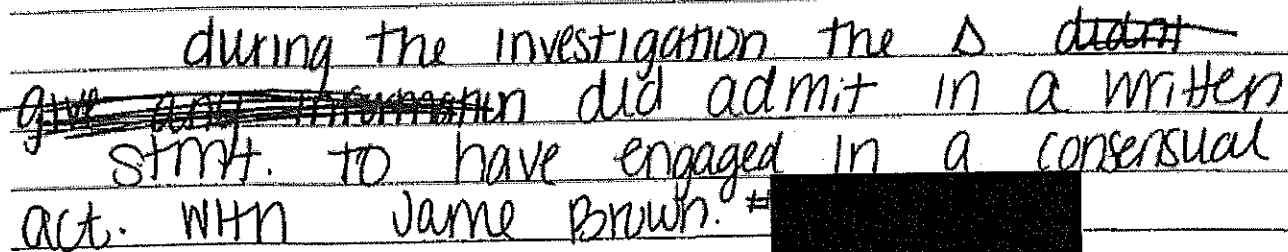 during the investigation the Δ didnt
give any informatin did admit in a written
stmt. to have engaged in a consensual
act. with Jame Brown. #